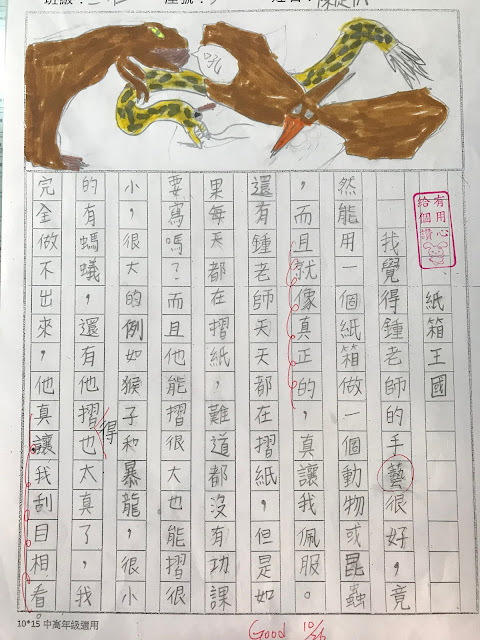 班級：
座號：
姓名：
吼
有用心
給個讚
紙箱王國
我覺得鍾老師的手藝很好，竟
然能用一個紙箱做一個動物或昆蟲
，而且就像真正的，真讓我佩服。
還有鍾老師天天都在摺紙，但是如
果每天都在摺紙，難道都沒有功課
要寫嗎？而且他能摺很大也能摺很
小，很大的例如猴子和暴龍，很小
的有螞蟻，還有他摺得也太真了，我
完全做不出來，他真讓我刮目相看。
10*15 中高年級適用
Good 10/26